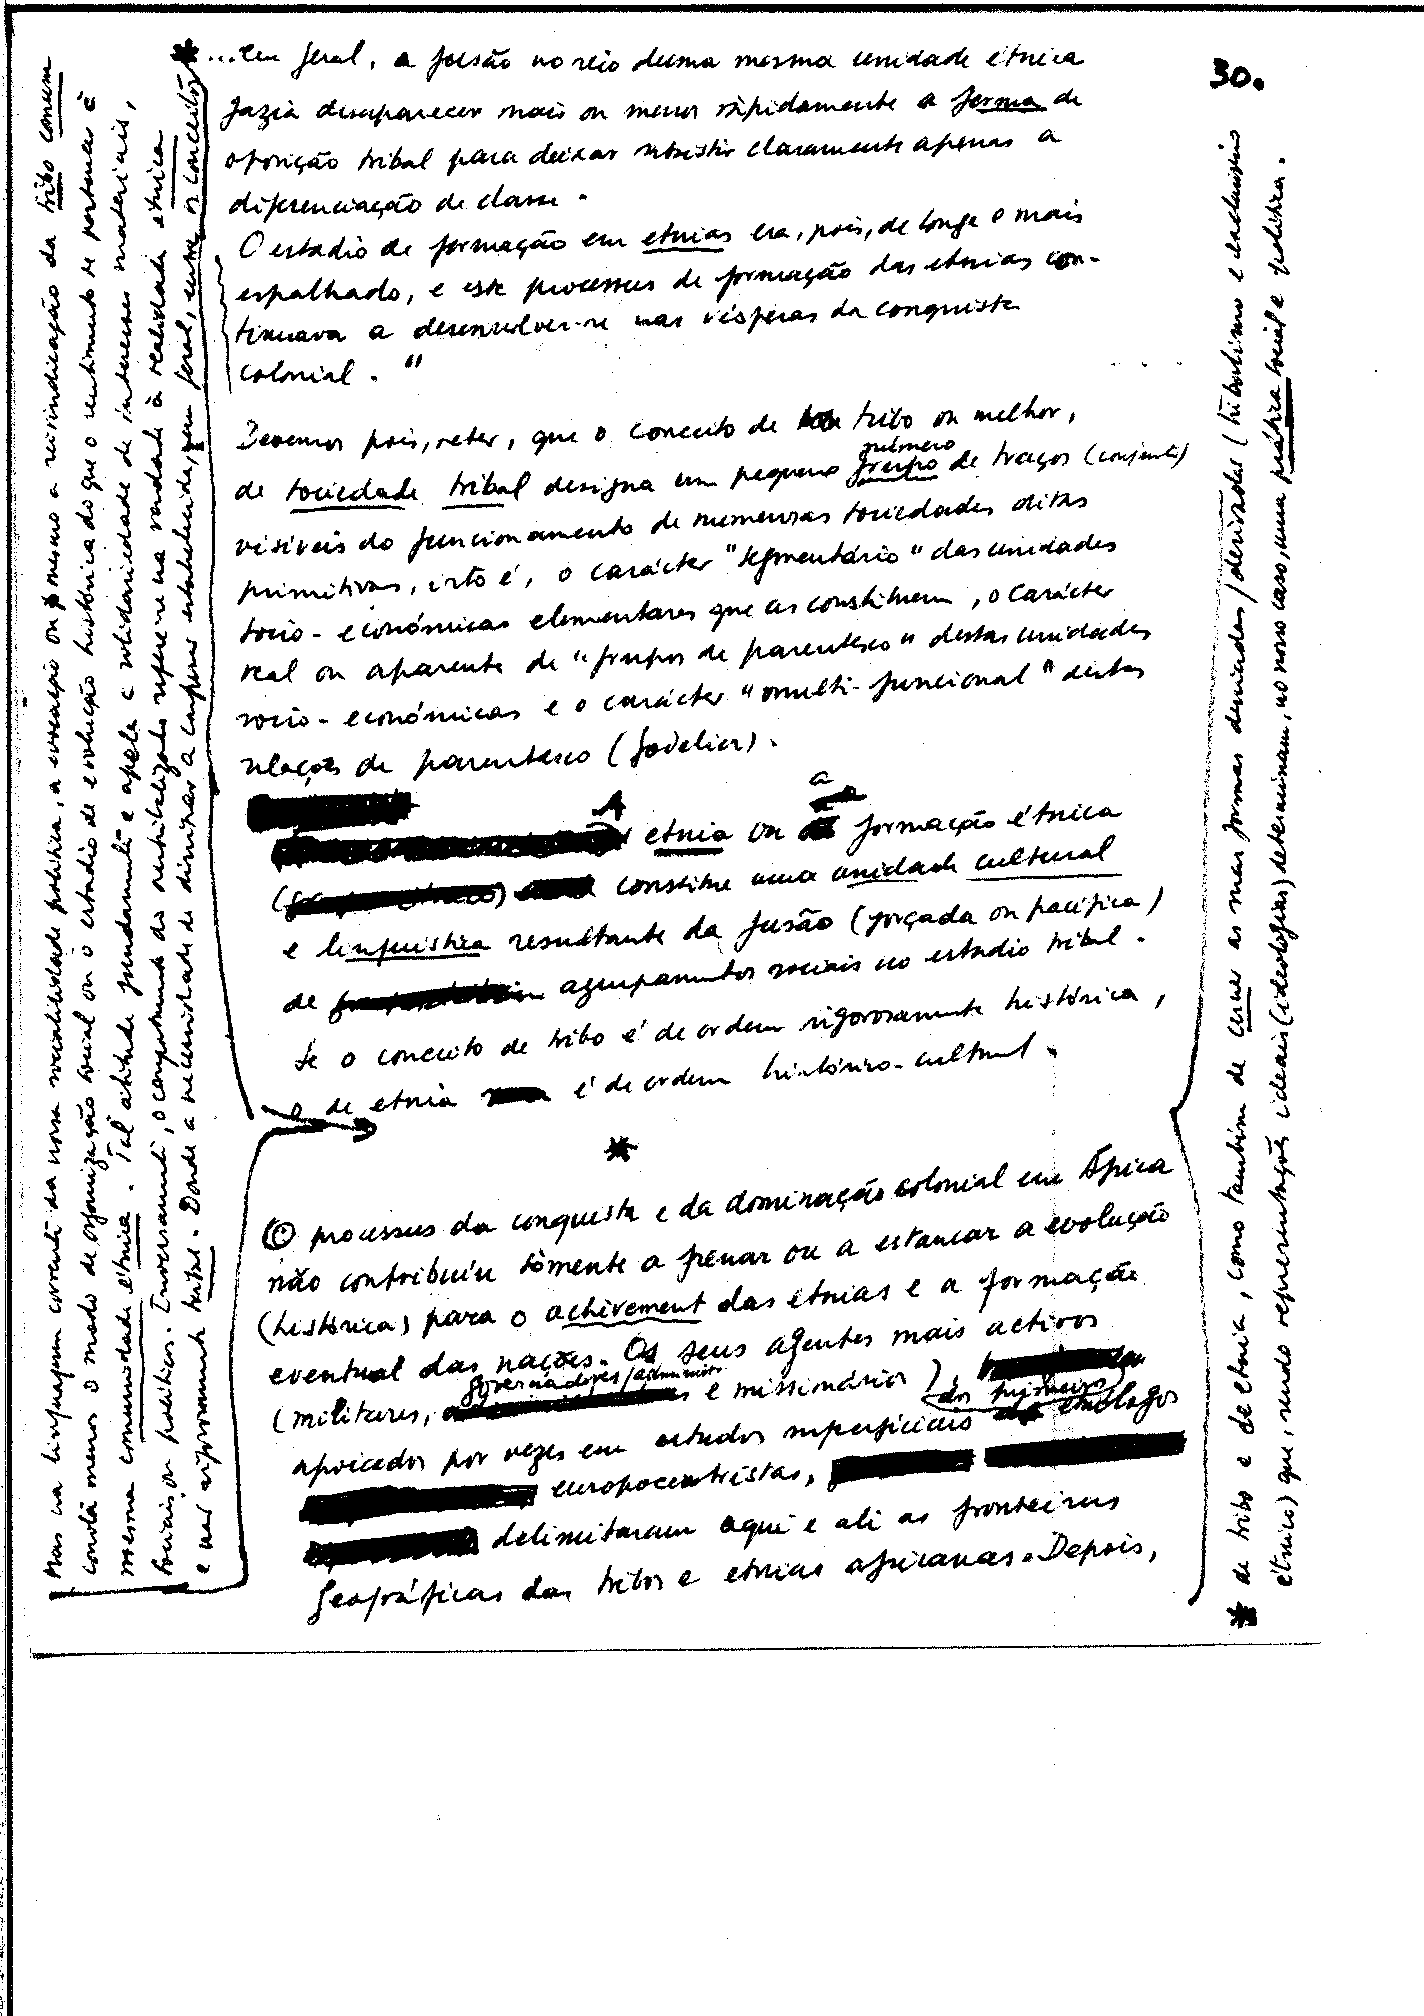 30.
...em geral, a fusão no seio duma mesma unidade étnica
fazia desaparecer mais ou menos ràpidamente a forma de
oposição tribal para deixar subsistir claramente apenas a
diferenciação de classe.
O estadio de formação em etnias era, pois, de longe o mais
espalhado, e este processus de formação das etnias con-
tinuava a desenvolver-se nas vésperas da conquista
colonial."
Devemos pois, reter, que o conceito de tribo ou melhor,
de sociedade tribal designa um pequeno número
grupo de traços (conjunto)
visíveis do funcionamento de numerosas sociedades ditas
primitivas, isto é, o carácter "segmentário" das unidades
socio-económicas elementares que as constituem, o carácter
real ou aparente de "grupos de parentesco" destas unidades
socio-económicas e o carácter "multi-funcional" destas
relações de parentesco (Godelier).
A etnia ou a formação étnica
constitue uma unidade cultural
e linguística resultante da fusão (forçada ou pacífica)
de agrupamentos sociais no estadio tribal.
Se o conceito de tribo é de ordem rigorosamente histórica,
o de etnia é de ordem histórico-cultural.
*
O processus da conquista e da dominação colonial em África
não contribuiu sòmente a frenar ou a estancar a evolução
(histórica) para o achivement das etnias e a formação
eventual das nações. Os seus agentes mais activos
(militares, governadores/administr e missionários),
apoiados por vezes em estudos superficiais dos primeiros etnólogos
europocentristas,
delimitaram aqui e ali as fronteiras
geográficas das tribos e etnias africanas. Depois,
Mas na linguagem corrente da nossa sociabilidade política, a evocação ou mesmo a reivindicação da tribo concem
conotá menos o modo de organização social ou o estadio de evolução histórica do que o sentimento de pertencer à
mesma comunidade étnica. Tal atitude fundamenta e apela a solidariedade de interesses materiais,
sociais ou políticos. Inversamente, o comportamento do retribalizado refere-se na verdade à realidade étnica
e não rigorosamente tribal. Donde a necessidade de dissipar a confusão estabelecida, em geral, entre os conceitos *
* de tribo e de etnia, como também de cerne as suas formas desviadas/derivadas (tribalismo e exclusivismo
étnico) que, sendo representações ideais (ideologias) determinam, no nosso caso, uma prática social e política.